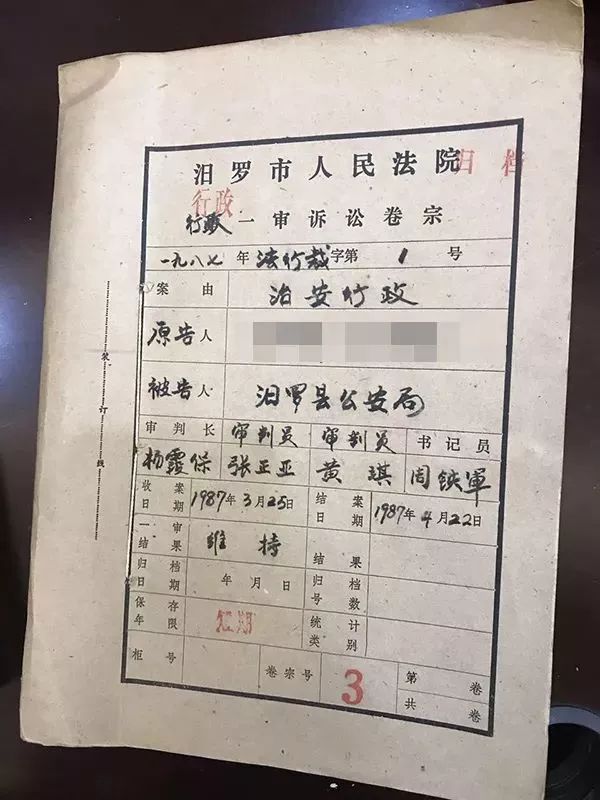 汨罗市人民法院
归档
行政
行政一审诉讼卷宗
一九八七年法行裁字第1号
案由 治安行政
原告人
被告人 汨罗县公安局
审判长 审判员 审判员 书记员
杨霞保 张正亚 黄琪 周铁军
收案日期 1987年3月25日 结案日期 1987年4月22日
一审结果 维持 结果
归档日期 年月日 归档号数
保存年限 短期 统计类别
柜号 卷宗号 3 第 卷
共 卷
装订线